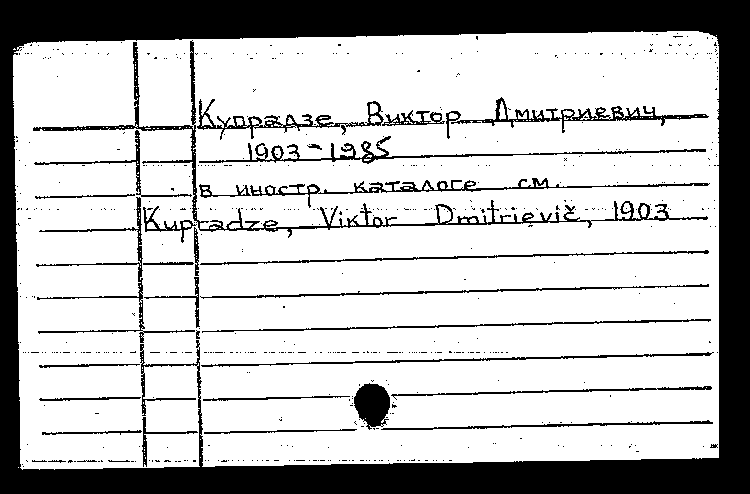 Купрадзе, Виктор Дмитриевич,
1903-1985
в иностр. каталоге см.
Kupradze, Viktor Dmitrievič, 1903